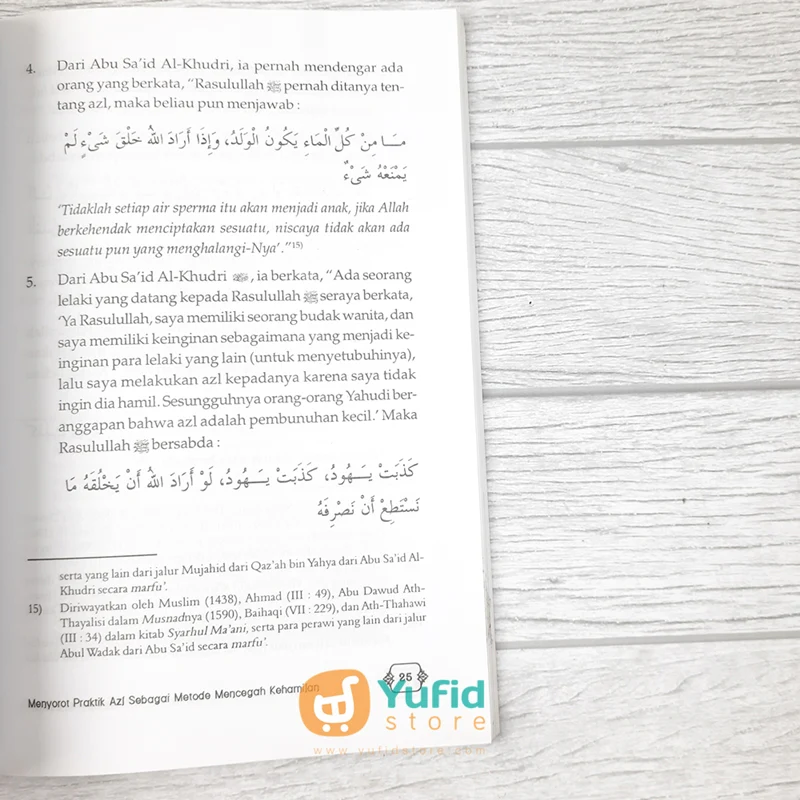 4. Dari Abu Sa'id Al-Khudri, ia pernah mendengar ada
orang yang berkata, "Rasulullah ﷺ pernah ditanya ten-
tang azl, maka beliau pun menjawab :
مَـا مِنْ كُلِّ الْمَاءِ يَكُونُ الْوَلَدُ، وَإِذَا أَرَادَ اللهُ خَلْقَ شَيْءٍ لَمْ
يَمْنَعْهُ شَيْءٌ
'Tidaklah setiap air sperma itu akan menjadi anak, jika Allah
berkehendak menciptakan sesuatu, niscaya tidak akan ada
sesuatu pun yang menghalangi-Nya'."15)
5. Dari Abu Sa'id Al-Khudri , ia berkata, "Ada seorang
lelaki yang datang kepada Rasulullah ﷺ seraya berkata,
'Ya Rasulullah, saya memiliki seorang budak wanita, dan
saya memiliki keinginan sebagaimana yang menjadi ke-
inginan para lelaki yang lain (untuk menyetubuhinya),
lalu saya melakukan azl kepadanya karena saya tidak
ingin dia hamil. Sesungguhnya orang-orang Yahudi ber-
anggapan bahwa azl adalah pembunuhan kecil.' Maka
Rasulullah ﷺ bersabda :
كَذَبَتْ يَـهُودُ، كَذَبَتْ يَـهُودُ، لَوْ أَرَادَ اللهُ أَنْ يَخْلُقَهُ مَا
نَسْتَطِعْ أَنْ نَصْرِفَهُ
serta yang lain dari jalur Mujahid dari Qaz'ah bin Yahya dari Abu Sa'id Al-
Khudri secara marfu'.
15) Diriwayatkan oleh Muslim (1438), Ahmad (III : 49), Abu Dawud Ath-
Thayalisi dalam Musnadnya (1590), Baihaqi (VII : 229), dan Ath-Thahawi
(III : 34) dalam kitab Syarhul Ma'ani, serta para perawi yang lain dari jalur
Abul Wadak dari Abu Sa'id secara marfu'.
Menyorot Praktik Azl Sebagai Metode Mencegah Kehamilan
25
Yufid
store
www.yufidstore.com